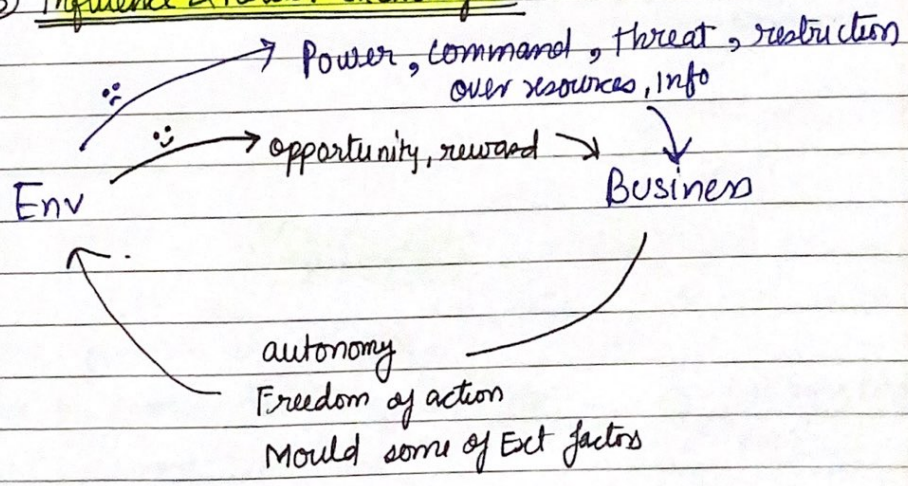 Influence &
Power, command, threat, restriction
over resources, info
opportunity, reward
Business
Env
autonomy
Freedom of action
Mould some of Ext factors